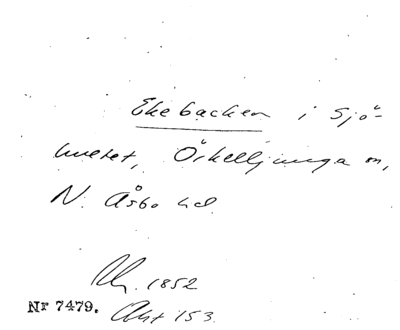 Ekebacken i Sjö-
huset, Örkelljunga sn,
N. Åsbo hd
1852
Nr 7479. Akt 153.